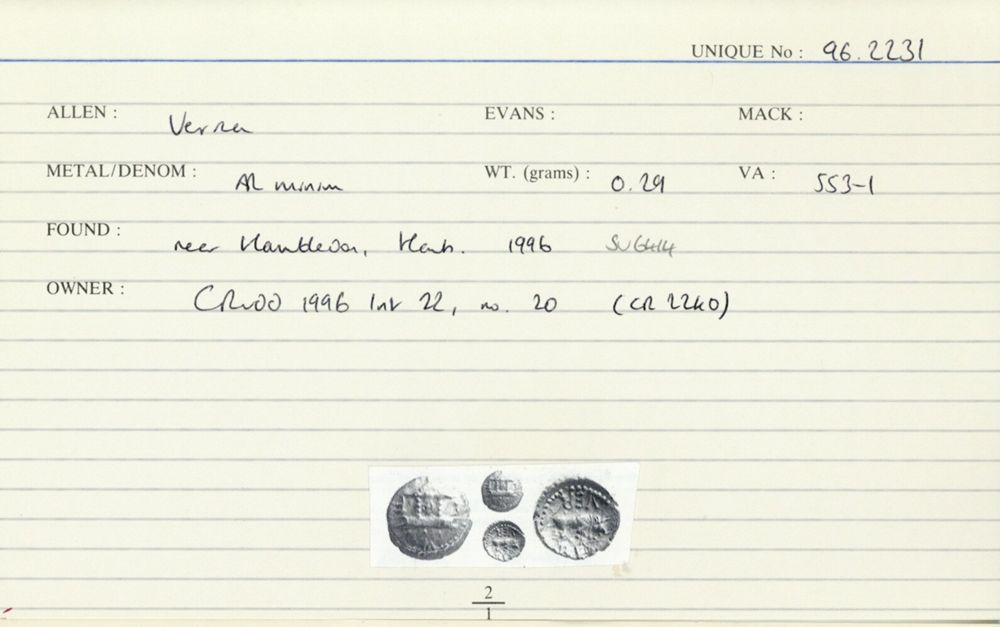 UNIQUE No : 96.2231
ALLEN : Verica EVANS : MACK :
METAL/DENOM : AR minim WT. (grams) : 0.29 VA : 553-1
FOUND : near Hambledon, Hants. 1996 SU6414
OWNER : CR 1996 22, no. 20 (CR 2240)
VER
2
1